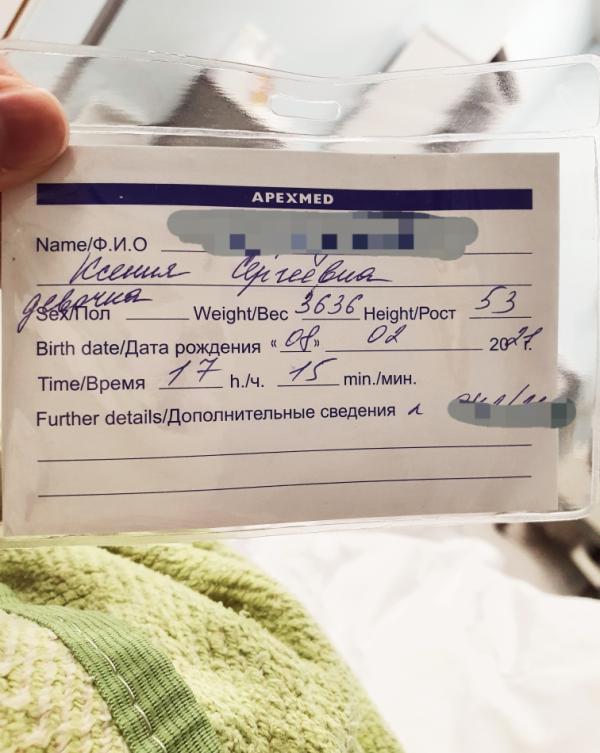 APEXMED
Name/Ф.И.О
Ксения Сергеевна
девочка
Sex/Пол Weight/Вес 3636 Height/Рост 53
Birth date/Дата рождения «08» 02 2021г.
Time/Время 17 h./ч. 15 min./мин.
Further details/Дополнительные сведения